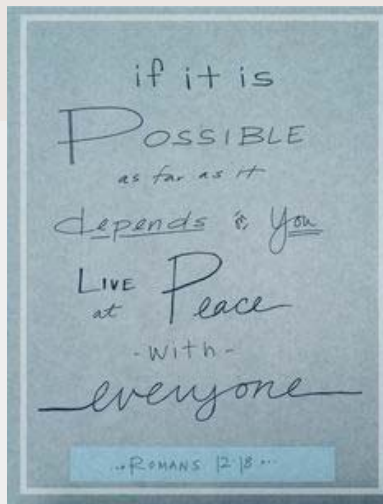 if it is
POSSIBLE
as far as it
depends on you
LIVE
at Peace
-with-
everyone
..ROMANS 12:18...